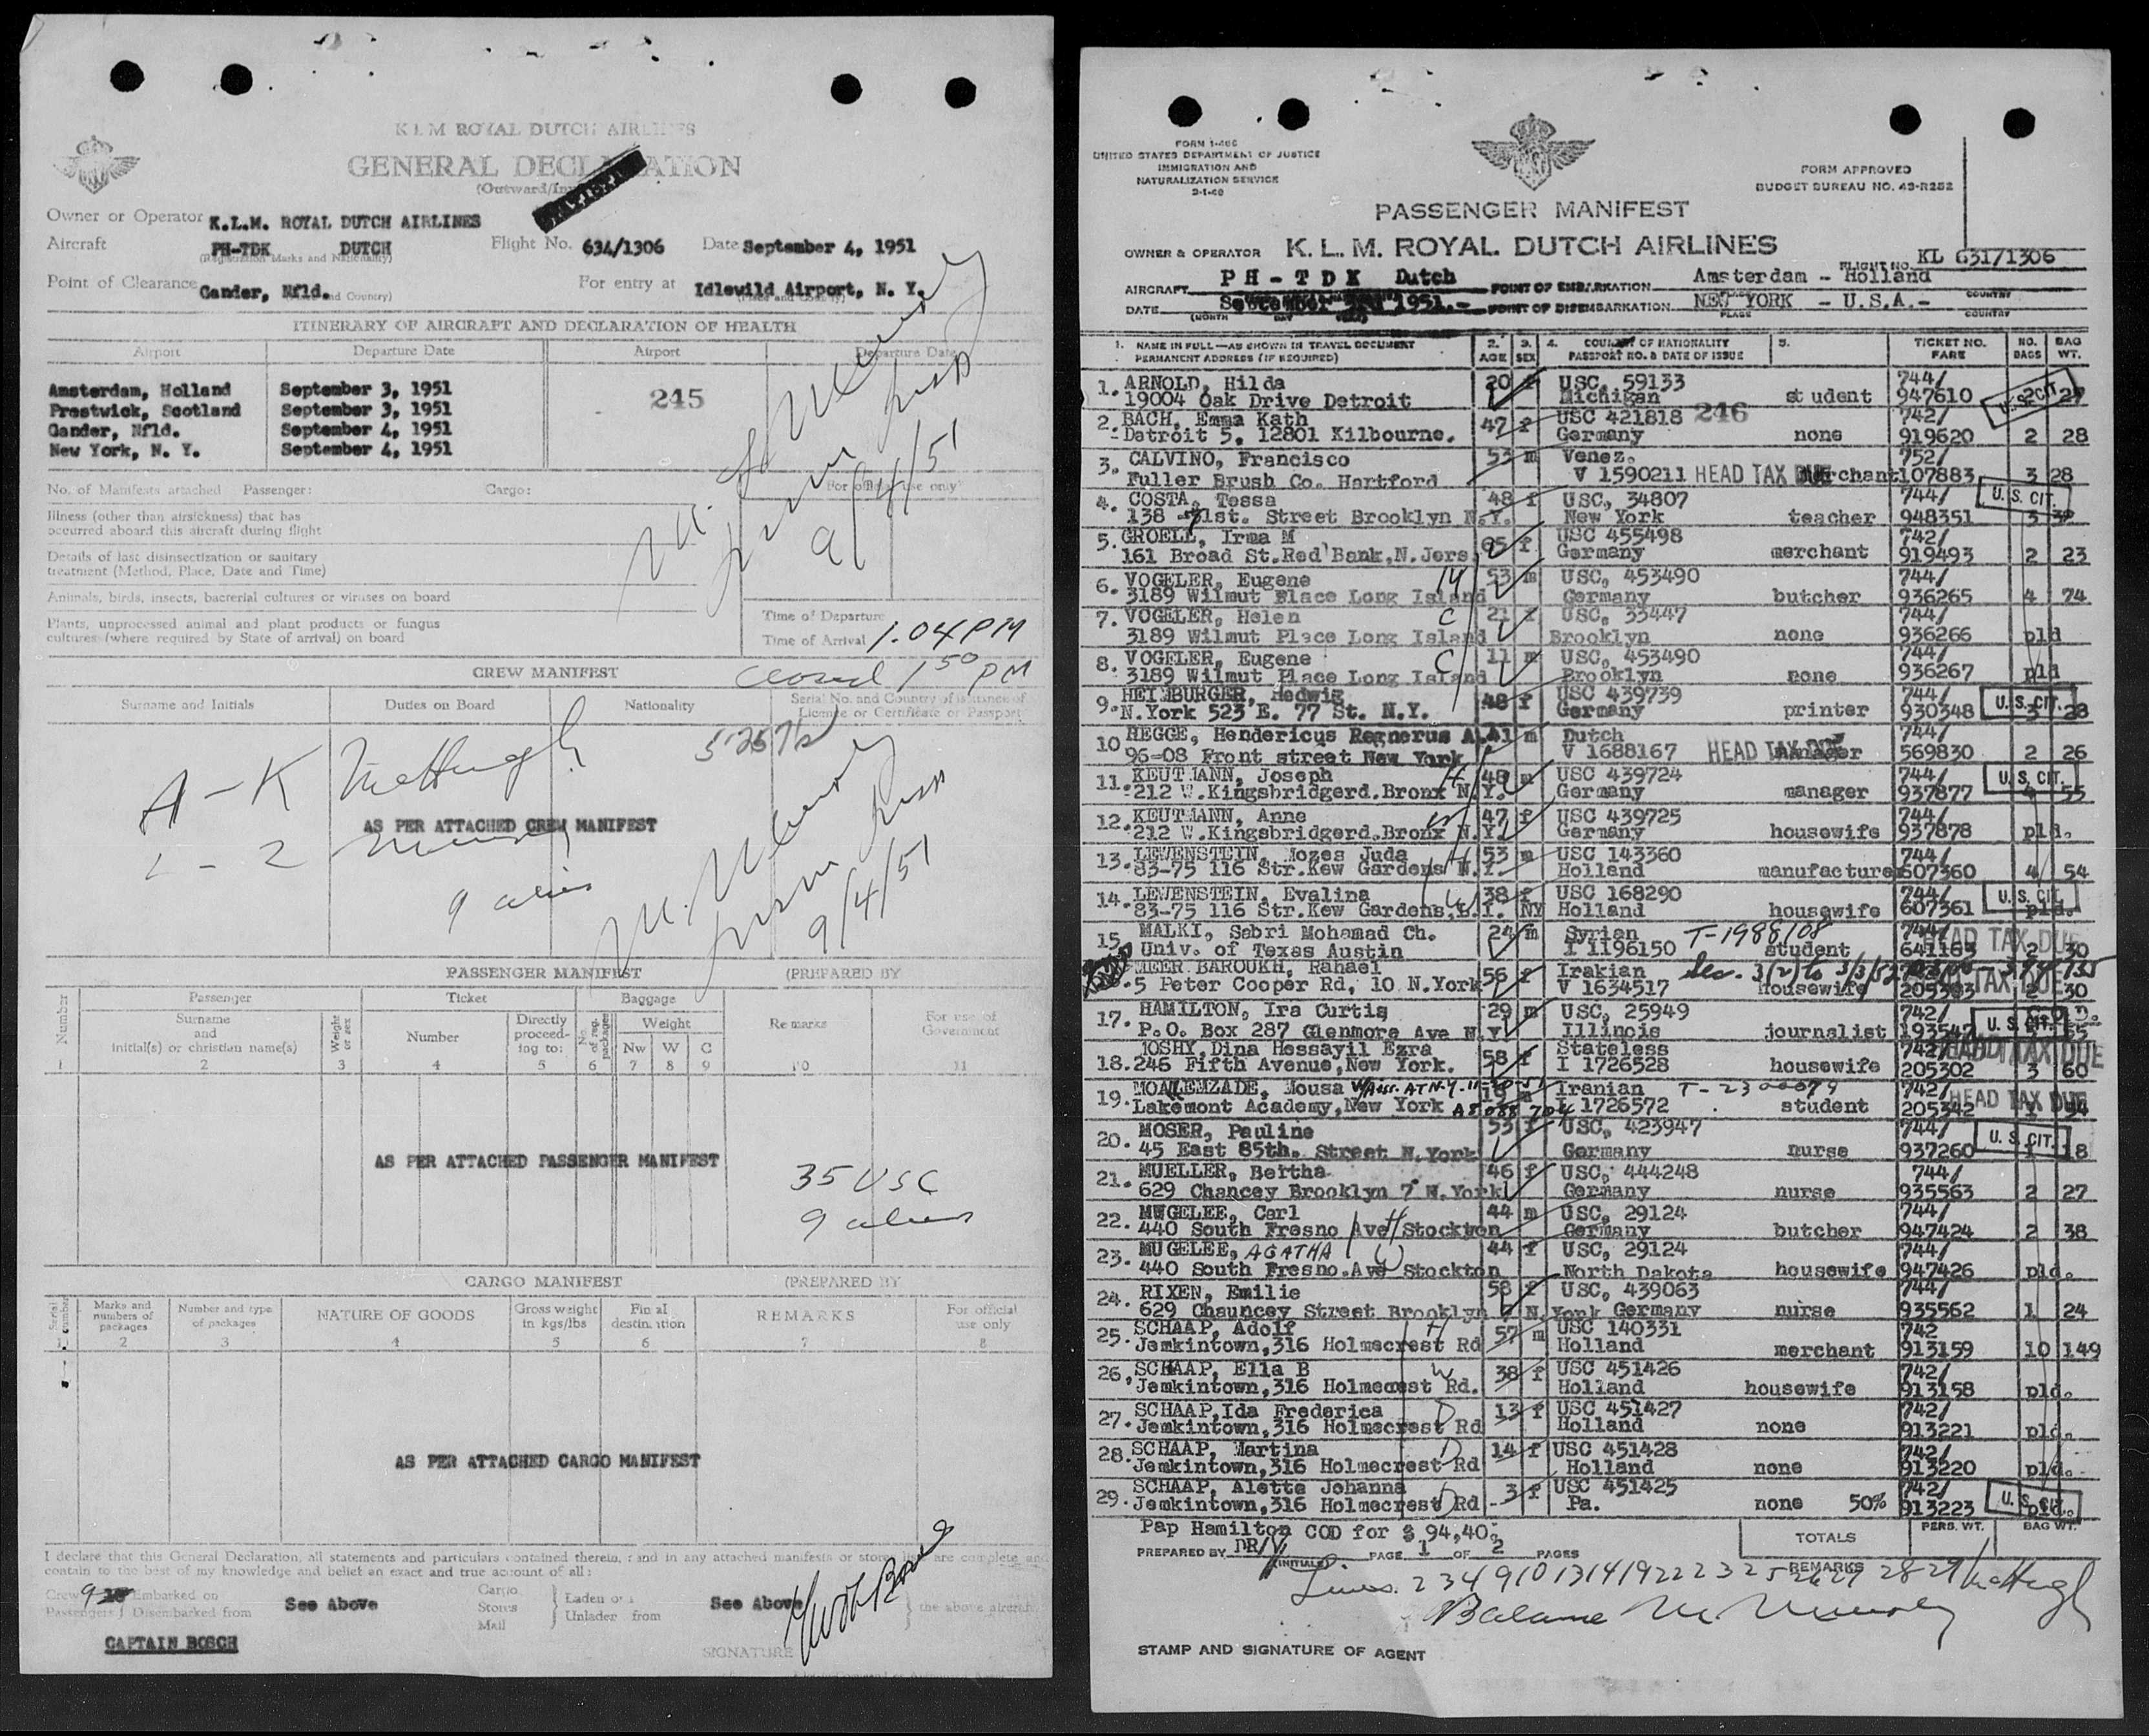 KLM ROYAL DUTCH AIRLINES
GENERAL DECLARATION
Owner or Operator K.L.M. ROYAL DUTCH AIRLINES
Aircraft PH-TDK DUTCH Flight No. 634/1306 Date September 4, 1951
(Registration Marks and Nationality)
Point of Clearance Gander, Nfld. For entry at Idlewild Airport, N. Y.
ITINERARY OF AIRCRAFT AND DECLARATION OF HEALTH
Airport Departure Date Airport Departure Date
Amsterdam, Holland September 3, 1951 245
Prestwick, Scotland September 3, 1951
Gander, Nfld. September 4, 1951
New York, N. Y. September 4, 1951
9/4/51
No. of Manifests attached Passenger: Cargo: For official use only
Illness (other than airsickness) that has
occurred aboard this aircraft during flight
Details of last disinsectization or sanitary
treatment (Method, Place, Date and Time)
Animals, birds, insects, bacterial cultures or viruses on board
Plants, unprocessed animal and plant products or fungus
cultures (where required by State of arrival) on board
Time of Departure
Time of Arrival 1.04 PM
CREW MANIFEST 1 50 PM
Surname and Initials Duties on Board Nationality Serial No. and Country of issuance of
License or Certificate or Passport
A - K
AS PER ATTACHED CREW MANIFEST
9 aliens
9/4/51
PASSENGER MANIFEST (PREPARED BY
Number Passenger Ticket Baggage Remarks For use of Government
Surname
and
initial(s) or christian name(s) Weight or sex Number Directly proceeding to: No. of reg. packages Weight
Nw W C
1 2 3 4 5 6 7 8 9 10 11
AS PER ATTACHED PASSENGER MANIFEST
35 USC
9 aliens
CARGO MANIFEST (PREPARED BY
Serial number Marks and numbers of packages Number and type of packages NATURE OF GOODS Gross weight in kgs/lbs Final destination REMARKS For official use only
1 2 3 4 5 6 7 8
AS PER ATTACHED CARGO MANIFEST
I declare that this General Declaration, all statements and particulars contained therein, and in any attached manifests or stores are complete and
contain to the best of my knowledge and belief an exact and true account of all:
Crew 9 Embarked on
Passengers Disembarked from See Above Cargo Stores Mail Laden on Unladen from See Above the above aircraft
CAPTAIN BOSCH
SIGNATURE
FORM I-466
UNITED STATES DEPARTMENT OF JUSTICE
IMMIGRATION AND
NATURALIZATION SERVICE
FORM APPROVED
BUDGET BUREAU NO. 43-R252
PASSENGER MANIFEST
OWNER & OPERATOR K. L. M. ROYAL DUTCH AIRLINES FLIGHT NO. KL 631/1306
AIRCRAFT PH-TDK Dutch POINT OF EMBARKATION Amsterdam - Holland
DATE September 1951.- POINT OF DISEMBARKATION NEW YORK - U.S.A.-
(MONTH DAY YEAR) PLACE COUNTRY
1. NAME IN FULL—AS SHOWN IN TRAVEL DOCUMENT 2. 3. 4. COUNTRY OF NATIONALITY 5. TICKET NO. NO. BAG
PERMANENT ADDRESS (IF REQUIRED) AGE SEX PASSPORT NO. & DATE OF ISSUE FARE BAGS WT.
1. ARNOLD, Hilda 20 f USC, 59133 744/
19004 Oak Drive Detroit Michigan student 947610 2 27 U.S. CIT.
2. BACH, Emma Kath 47 f USC 421818 246 742/
-Detroit 5, 12801 Kilbourne. Germany none 919620 2 28
3. CALVINO, Francisco 53 m Venez. 752/
Fuller Brush Co. Hartford V 1590211 HEAD TAX DUE merchant 107883 3 28
4. COSTA, Tessa 48 f USC, 34807 744/ U. S. CIT.
138 -71st. Street Brooklyn N.Y. New York teacher 948351 3
5. GROELL, Irma M 65 f USC 455498 742/
161 Broad St.Red Bank,N.Jers Germany merchant 919493 2 23
6. VOGELER, Eugene 53 m USC, 453490 744/
3189 Wilmut Place Long Island Germany butcher 936265 4 74
7. VOGELER, Helen C 21 f USC, 33447 744/
3189 Wilmut Place Long Island Brooklyn none 936266 pld
8. VOGELER, Eugene C 11 m USC, 453490 744/
3189 Wilmut Place Long Island Brooklyn none 936267 pld
9. HEIMBURGER, Hedwig 48 f USC 439739 744/
N.York 523 E. 77 St. N.Y. Germany printer 930348 3 28 U. S. CIT.
10 HEGGE, Hendericus Regnerus A. 41 m Dutch 744/
96-08 Front street New York V 1688167 HEAD TAX DUE manager 569830 2 26
11. KEUTMANN, Joseph H 48 m USC 439724 744/ U. S. CIT.
212 W.Kingsbridgerd.Bronx N.Y. Germany manager 937877 4 55
12. KEUTMANN, Anne W 47 f USC 439725 744/
212 W.Kingsbridgerd.Bronx N.Y. Germany housewife 937878 pld.
13. LEWENSTEIN, Mozes Juda H 53 m USC 143360 744/
83-75 116 Str.Kew Gardens N.Y. Holland manufacturer 607360 4 54
14. LEWENSTEIN, Evalina W 38 f USC 168290 744/ U. S. CIT.
83-75 116 Str.Kew Gardens,L.I. NY Holland housewife 607361 pld.
15. MALKI, Sabri Mohamad Ch. 24 m Syrian T-1988108 744/ HEAD TAX DUE
Univ. of Texas Austin I 1196150 student 641163 2 30
MEER BAROUKH, Rahael 56 f Irakian Sec. 3(2) to 3/3/52
5 Peter Cooper Rd, 10 N.York V 1634517 housewife 205303 2 30 HEAD TAX DUE
17. HAMILTON, Ira Curtis 29 m USC, 25949 742/
P.O. Box 287 Glenmore Ave N.Y. Illinois journalist 193547 U. S. CIT.
18. JOSHY, Dina Hessayil Ezra 58 f Stateless 742/ HEAD TAX DUE
246 Fifth Avenue,New York. I 1726528 housewife 205302 3 60
19. MOALEMZADE, Mousa 19 m Iranian T-2300079 742/
Lakemont Academy,New York A8 088 704 I 1726572 student 205342 HEAD TAX DUE
20. MOSER, Pauline 53 f USC, 423947 744/ U. S. CIT.
45 East 85th. Street N.York Germany nurse 937260 1 18
21. MUELLER, Bertha 46 f USC, 444248 744/
629 Chancey Brooklyn 7 N.York Germany nurse 935563 2 27
22. MUGELEE, Carl H 44 m USC, 29124 744/
440 South Fresno Ave Stockton Germany butcher 947424 2 38
23. MUGELEE, AGATHA W 44 f USC, 29124 744/
440 South Fresno.Ave Stockton North Dakota housewife 947426 pld.
24. RIXEN, Emilie 58 f USC, 439063 744/
629 Chauncey Street Brooklyn 7 N.York Germany nurse 935562 1 24
25. SCHAAP, Adolf H 57 m USC 140331 742
Jemkintown,316 Holmecrest Rd Holland merchant 913159 10 149
26. SCHAAP, Ella B W 38 f USC 451426 742/
Jemkintown,316 Holmecrest Rd. Holland housewife 913158 pld.
27. SCHAAP,Ida Frederica D 13 f USC 451427 742/
Jemkintown,316 Holmecrest Rd Holland none 913221 pld.
28. SCHAAP, Martina D 14 f USC 451428 742/
Jemkintown,316 Holmecrest Rd Holland none 913220 pld.
29. SCHAAP, Alette Johanna D 3 f USC 451425 742/
Jemkintown,316 Holmecrest Rd Pa. none 50% 913223 pld. U. S. CIT.
Pap Hamilton COD for $ 94,40
PREPARED BY DR/ (INITIALS) PAGE 1 OF 2 PAGES TOTALS PERS. WT. BAG WT.
REMARKS
Lines 2 3 4 9 10 13 14 19 22 23 25 26 27 28 29
Balance
STAMP AND SIGNATURE OF AGENT